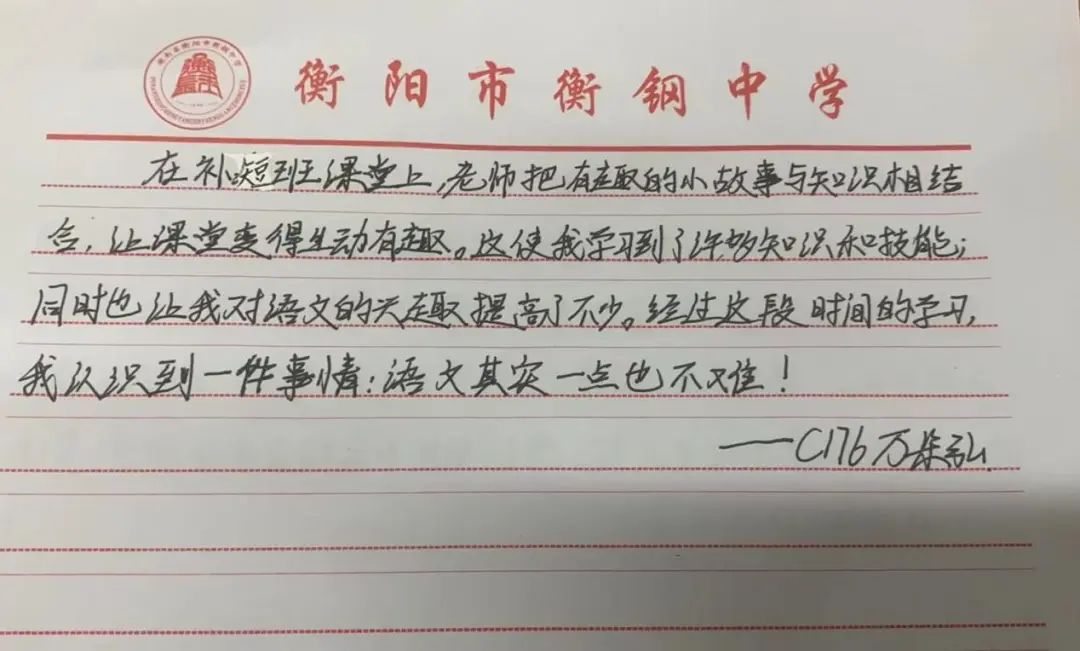 衡阳市衡钢中学
在补短班课堂上,老师把有趣的小故事与知识相结
合,让课堂变得生动有趣。这使我学习到了许多知识和技能;
同时也让我对语文的兴趣提高了不少。经过这段时间的学习,
我认识到一件事情:语文其实一点也不难!
——C176 万朵弘